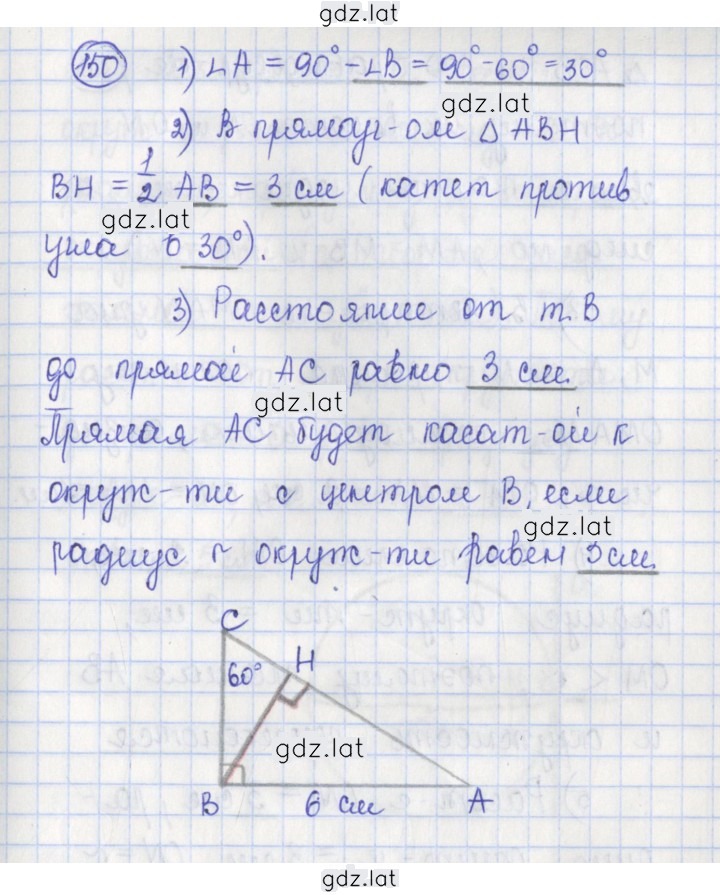 gdz.lat
150 1) ∠A = 90° - ∠B = 90° - 60° = 30°
gdz.lat
2) В прямоуг-ом △ ABH
BH = 1/2 AB = 3 см (катет против
gdz.lat
угла в 30°).
3) Расстояние от т. B
до прямой AC равно 3 см.
gdz.lat
Прямая AC будет касат-ой к
окруж-ти с центром B, если
gdz.lat
радиус r окруж-ти равен 3 см.
C
60° H
gdz.lat
B 6 см A
gdz.lat